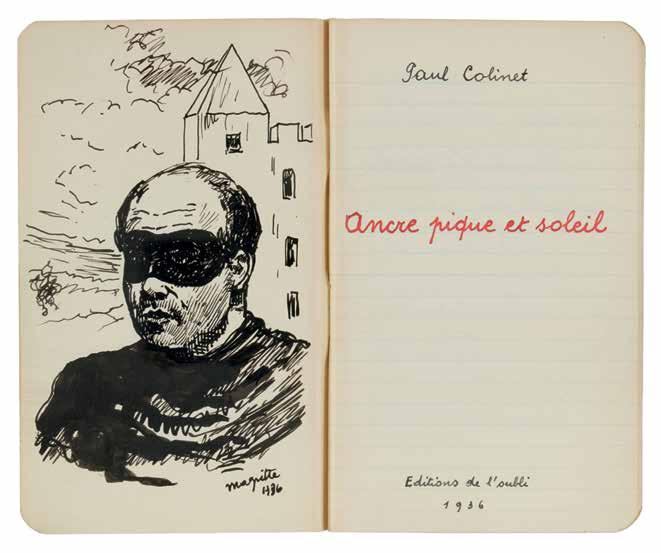 magritte
1936
Paul Colinet
Ancre pique et soleil
Editions de l'oubli
1936